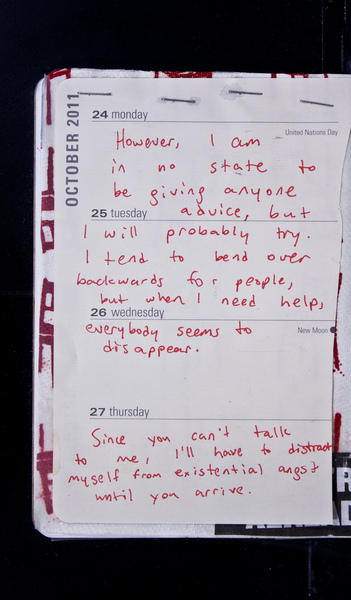 OCTOBER 2011
24 monday
United Nations Day
However, I am
in no state to
be giving anyone
advice, but
25 tuesday
I will probably try.
I tend to bend over
backwards for people,
but when I need help,
26 wednesday
everybody seems to
New Moon
disappear.
27 thursday
Since you can't talk
to me, I'll have to distract
myself from existential angst
until you arrive.